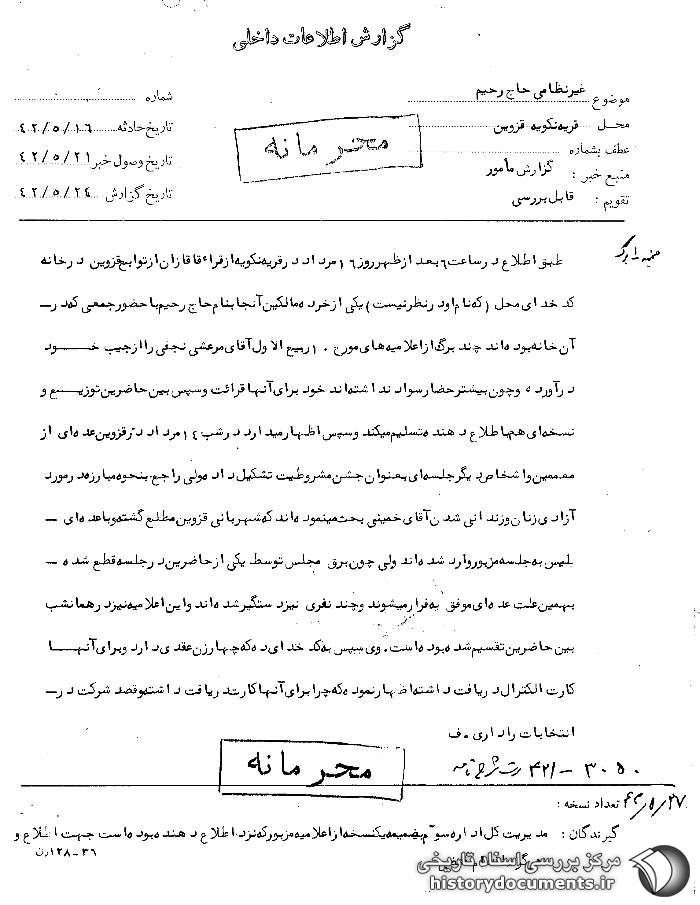 گزارش اطلاعات داخلی
موضوع غیرنظامی حاج رحیم
شماره
محل قریه نکویه قزوین
تاریخ حادثه ۴۲/۵/۱۶
عطف بشماره
تاریخ وصول خبر ۴۲/۵/۲۱
منبع خبر : گزارش مأمور
تاریخ گزارش ۴۲/۵/۲۴
تقویم : قابل بررسی
محرمانه
طبق اطلاع در ساعت ۶ بعد از ظهر روز ۱۶ مرداد در قریه نکویه از قراء قاقازان از توابع قزوین در خانه
کدخدای محل (که نام او در نظر نیست) یکی از خرده مالکین آنجا بنام حاج رحیم با حضور جمعی که در
آن خانه بوده اند چند برگ از اعلامیه های مورخ ۱۰ ربیع الاول آقای مرعشی نجفی را از جیب خود
درآورده و چون بیشتر حضار سواد نداشته اند خود برای آنها قرائت و سپس بین حاضرین توزیع و
نسخه ای هم باطلاع دهنده تسلیم میکند و سپس اظهار میدارد در شب ۱۴ مرداد در قزوین عده ای از
معممین و اشخاص دیگر جلسه ای بعنوان جشن مشروطیت تشکیل داده ولی راجع بنحوه مبارزه در مورد
آزادی زنان و زندانی شدن آقای خمینی بحث مینموده اند که شهربانی قزوین مطلع گشته و با عده ای
پلیس به جلسه مزبور وارد شده اند ولی چون برق مجلس توسط یکی از حاضرین در جلسه قطع شده
بهمین علت عده ای موفق به فرار میشوند و چند نفری نیز دستگیر شده اند و این اعلامیه نیز در همان شب
بین حاضرین تقسیم شده بوده است. وی سپس به کدخدای ده که چهار زن عقدی دارد و برای آنها
کارت الکترال دریافت داشته اظهار نموده که چرا برای آنها کارت دریافت داشته و قصد شرکت در
انتخابات را داری. ف
محرمانه
۴۲/۵/۲۷
تعداد نسخه :
گیرندگان : مدیریت کل اداره سوم بضمیمه یک نسخه از اعلامیه مزبور که نزد اطلاع دهنده بوده است جهت اطلاع و
۳۶-۱۲۸ ن
مرکز بررسی اسناد تاریخی
historydocuments.ir